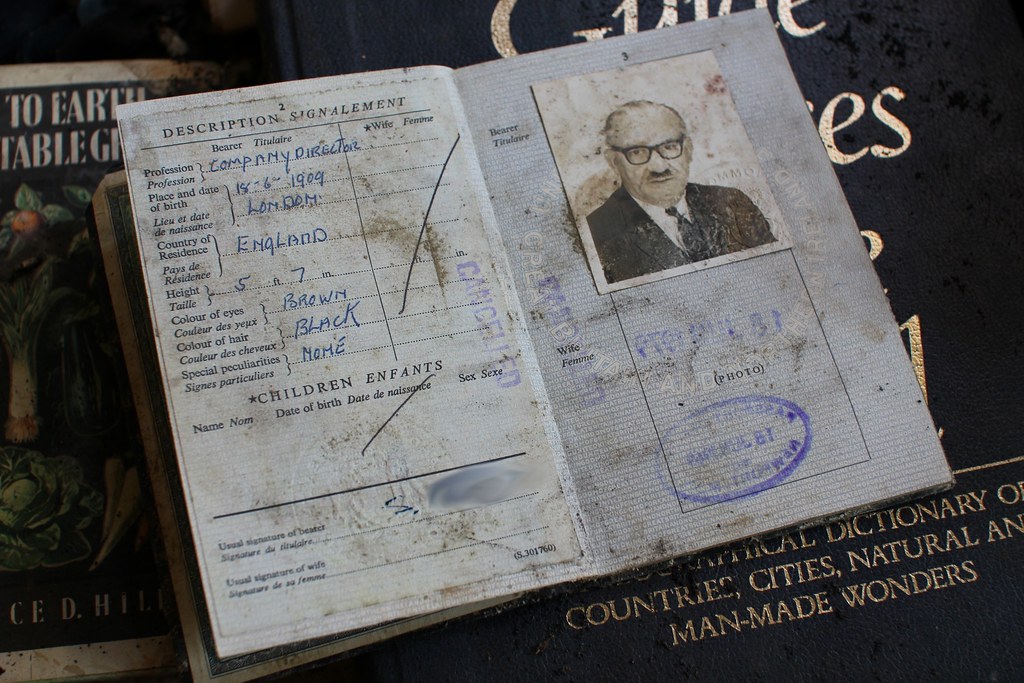 TO EARTH
TABLE
CE D. HILL
2
DESCRIPTION SIGNALEMENT
Bearer Titulaire
★Wife Femme
Profession } COMPANY DIRECTOR
Profession
Place and date } 18-6-1909
of birth
Lieu et date LONDON.
de naissance
Country of } ENGLAND
Residence
Pays de
Résidence
Height } 5 ft 7 in. ft. in.
Taille
Colour of eyes } BROWN
Couleur des yeux
Colour of hair } BLACK
Couleur des cheveux
Special peculiarities } NONE
Signes particuliers
★CHILDREN ENFANTS
Name Nom Date of birth Date de naissance Sex Sexe
Usual signature of bearer
Signature du titulaire
Usual signature of wife
Signature de sa femme
(S.301760)
CANCELLED
3
Bearer
Titulaire
Wife
Femme
(PHOTO)
Guide
DICTIONARY OF
COUNTRIES, CITIES, NATURAL AN
MAN-MADE WONDERS